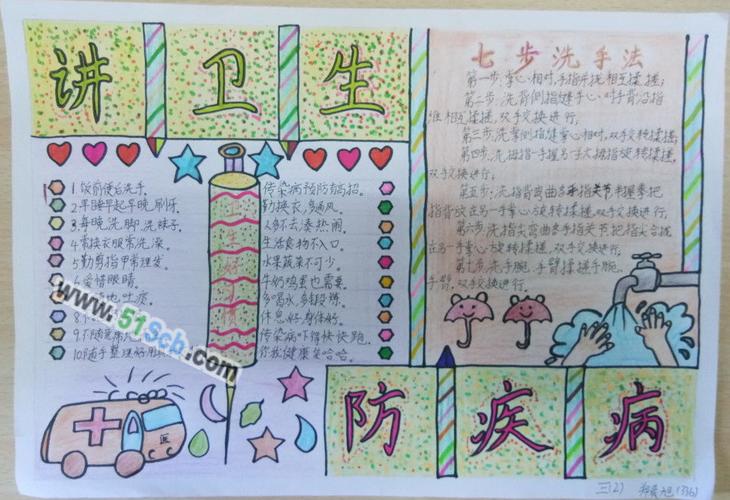 讲卫生
七步洗手法
第一步:掌心相对,手指并拢相互揉搓;
第二步,洗背侧指缝手心对手背沿指
缝相互揉搓,双手交换进行;
第三步,洗掌侧指缝掌心相对,双手交叉揉搓
第四步,洗拇指一手握另一手大拇指旋转揉搓,
双手交换进行;
第五步:洗指背弯曲各手指关节半握拳把
指背放在另一手掌心旋转揉搓,双手交换进行;
第六步,洗指尖弯曲各手指关节把指尖合拢
在另一手掌心旋转揉搓,双手交换进行;
第七步,洗手腕、手臂揉搓手腕、
手臂,双手交换进行.
1.饭前便后洗手.
2.早睡早起早晚刷牙.
3.每晚洗脚、洗袜子.
4.常换衣服常洗澡.
5.勤剪指甲常理发.
6.爱惜眼睛.
地吐痰.
8.
9.不随意
10.随手整理好用
卫生好习惯
传染病预防有高招.
勤换衣,多通风.
人多不去凑热闹.
生活食物不入口.
水果蔬菜不可少.
牛奶鸡蛋也需要.
多喝水,多锻炼.
休息好,身体好.
传染病吓得快快跑.
你我健康笑哈哈.
www.51Scb.com
防疾病
三(2)
(336)